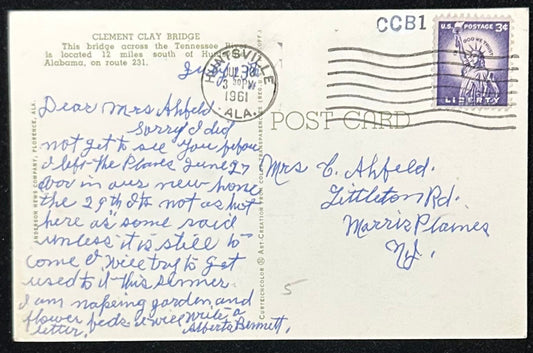 CLEMENT CLAY BRIDGE
This bridge across the Tennessee River
is located 12 miles south of Huntsville
Alabama, on route 231.
CCB1
U.S. POSTAGE 3¢
IN GOD WE TRUST
LIBERTY
HUNTSVILLE
JUL
PM
1961
ALA.
POST CARD
ANDERSON NEWS COMPANY, FLORENCE, ALA.
CURTEICHCOLOR ® ART-CREATION FROM COLOR TRANSPARENCY
July
Dear Mrs Ahfeld
Sorry I did
not get to see you before
I left the Plains June 27
in our new home
the 29th. It's not as hot
here as some said
unless it is still to
come I will try to get
used to it this summer.
I am making garden and
flower beds. I will write a
letter. Alberta Bennett,
Mrs C. Ahfeld.
Littleton Rd.
Morris Plaines
N.J.
5